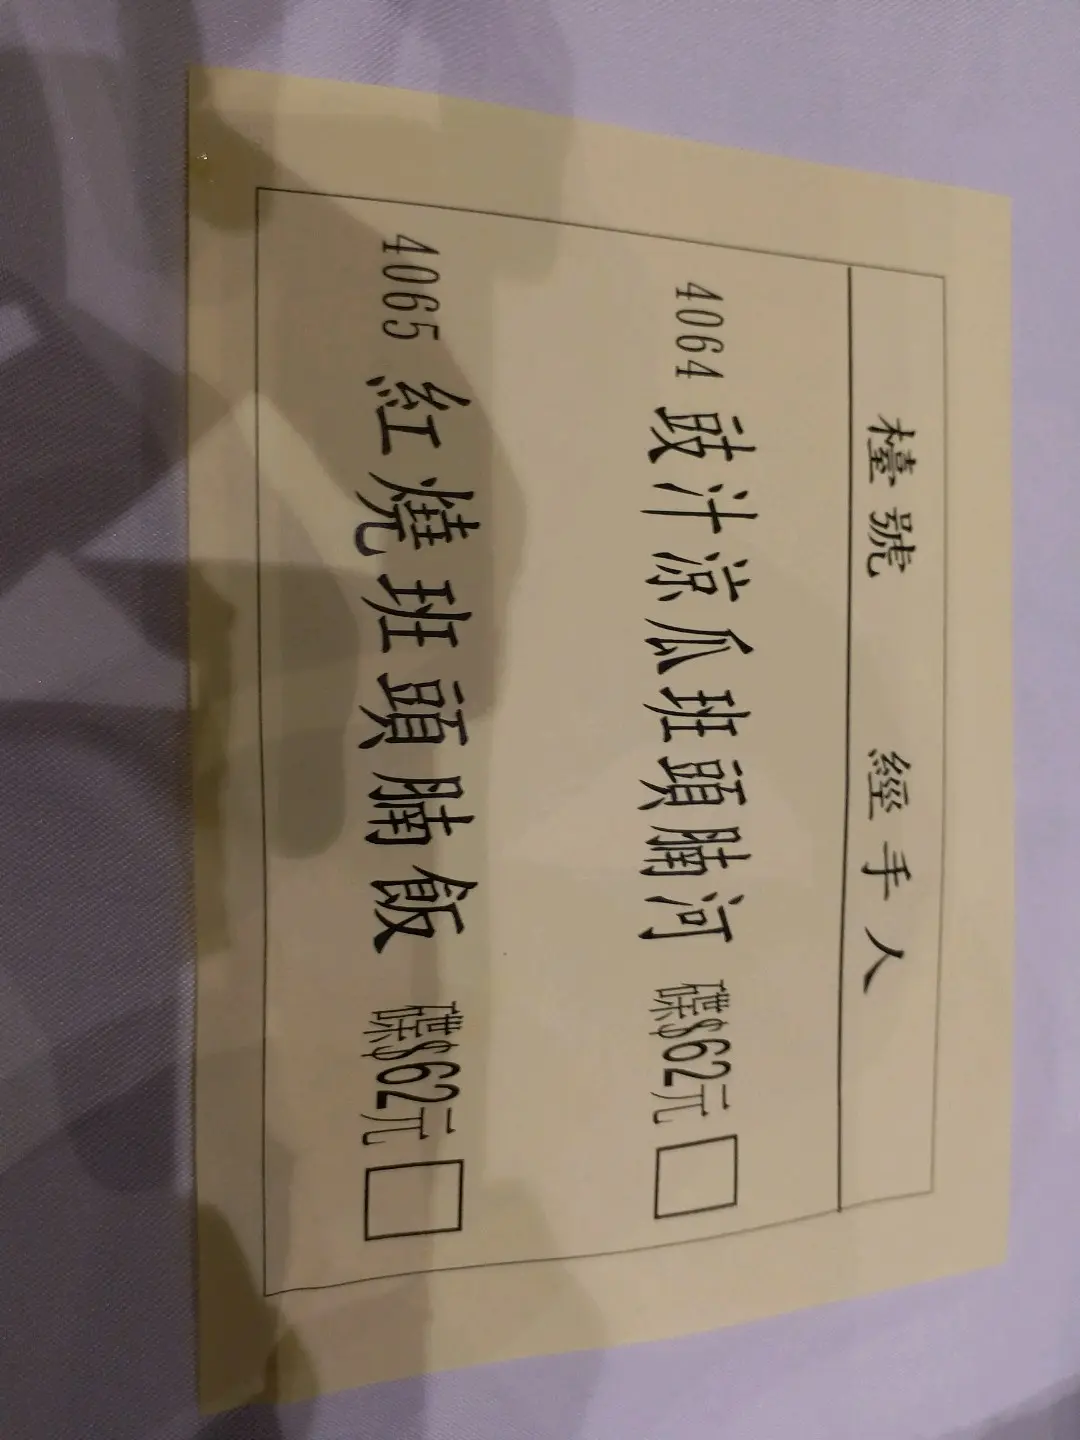 檯號 經手人
4064 豉汁涼瓜班頭腩河 碟$62元
4065 紅燒班頭腩飯 碟$62元